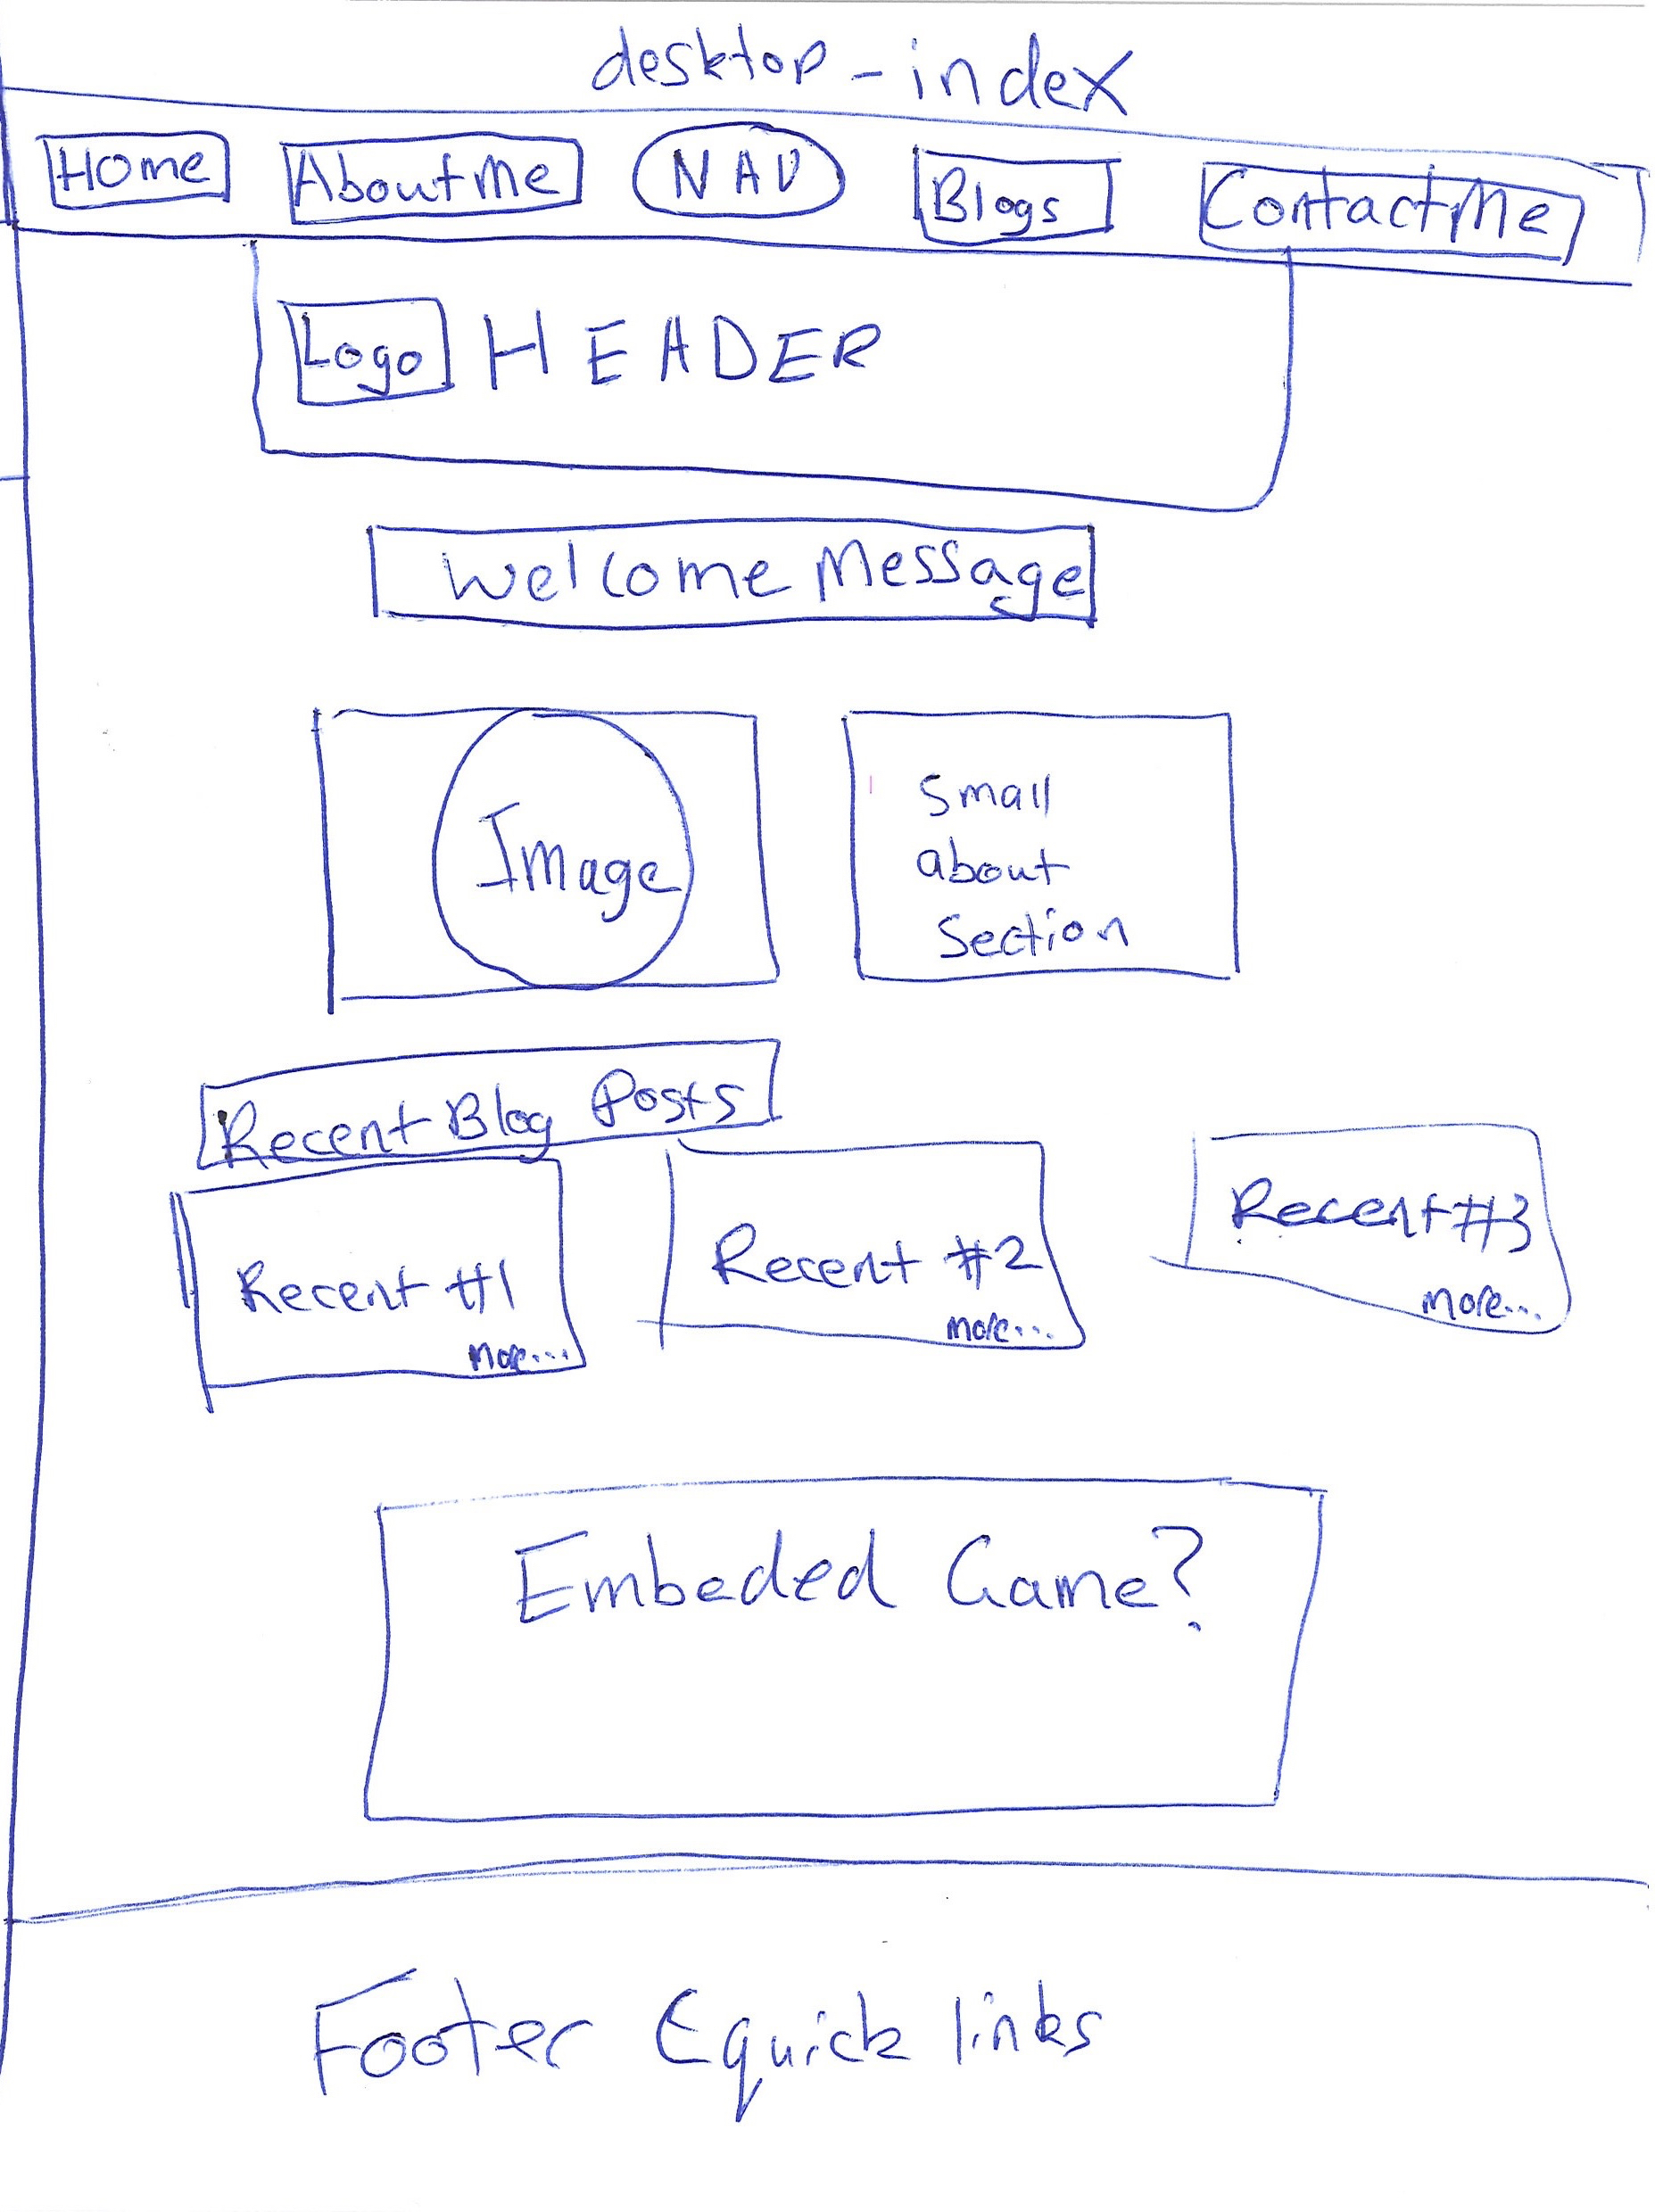 desktop - index
Home About Me NAV Blogs Contact Me
Logo HEADER
Welcome Message
Image
Small
about
Section
Recent Blog Posts
Recent #1
more...
Recent #2
more...
Recent #3
more...
Embeded Game?
Footer & quick links